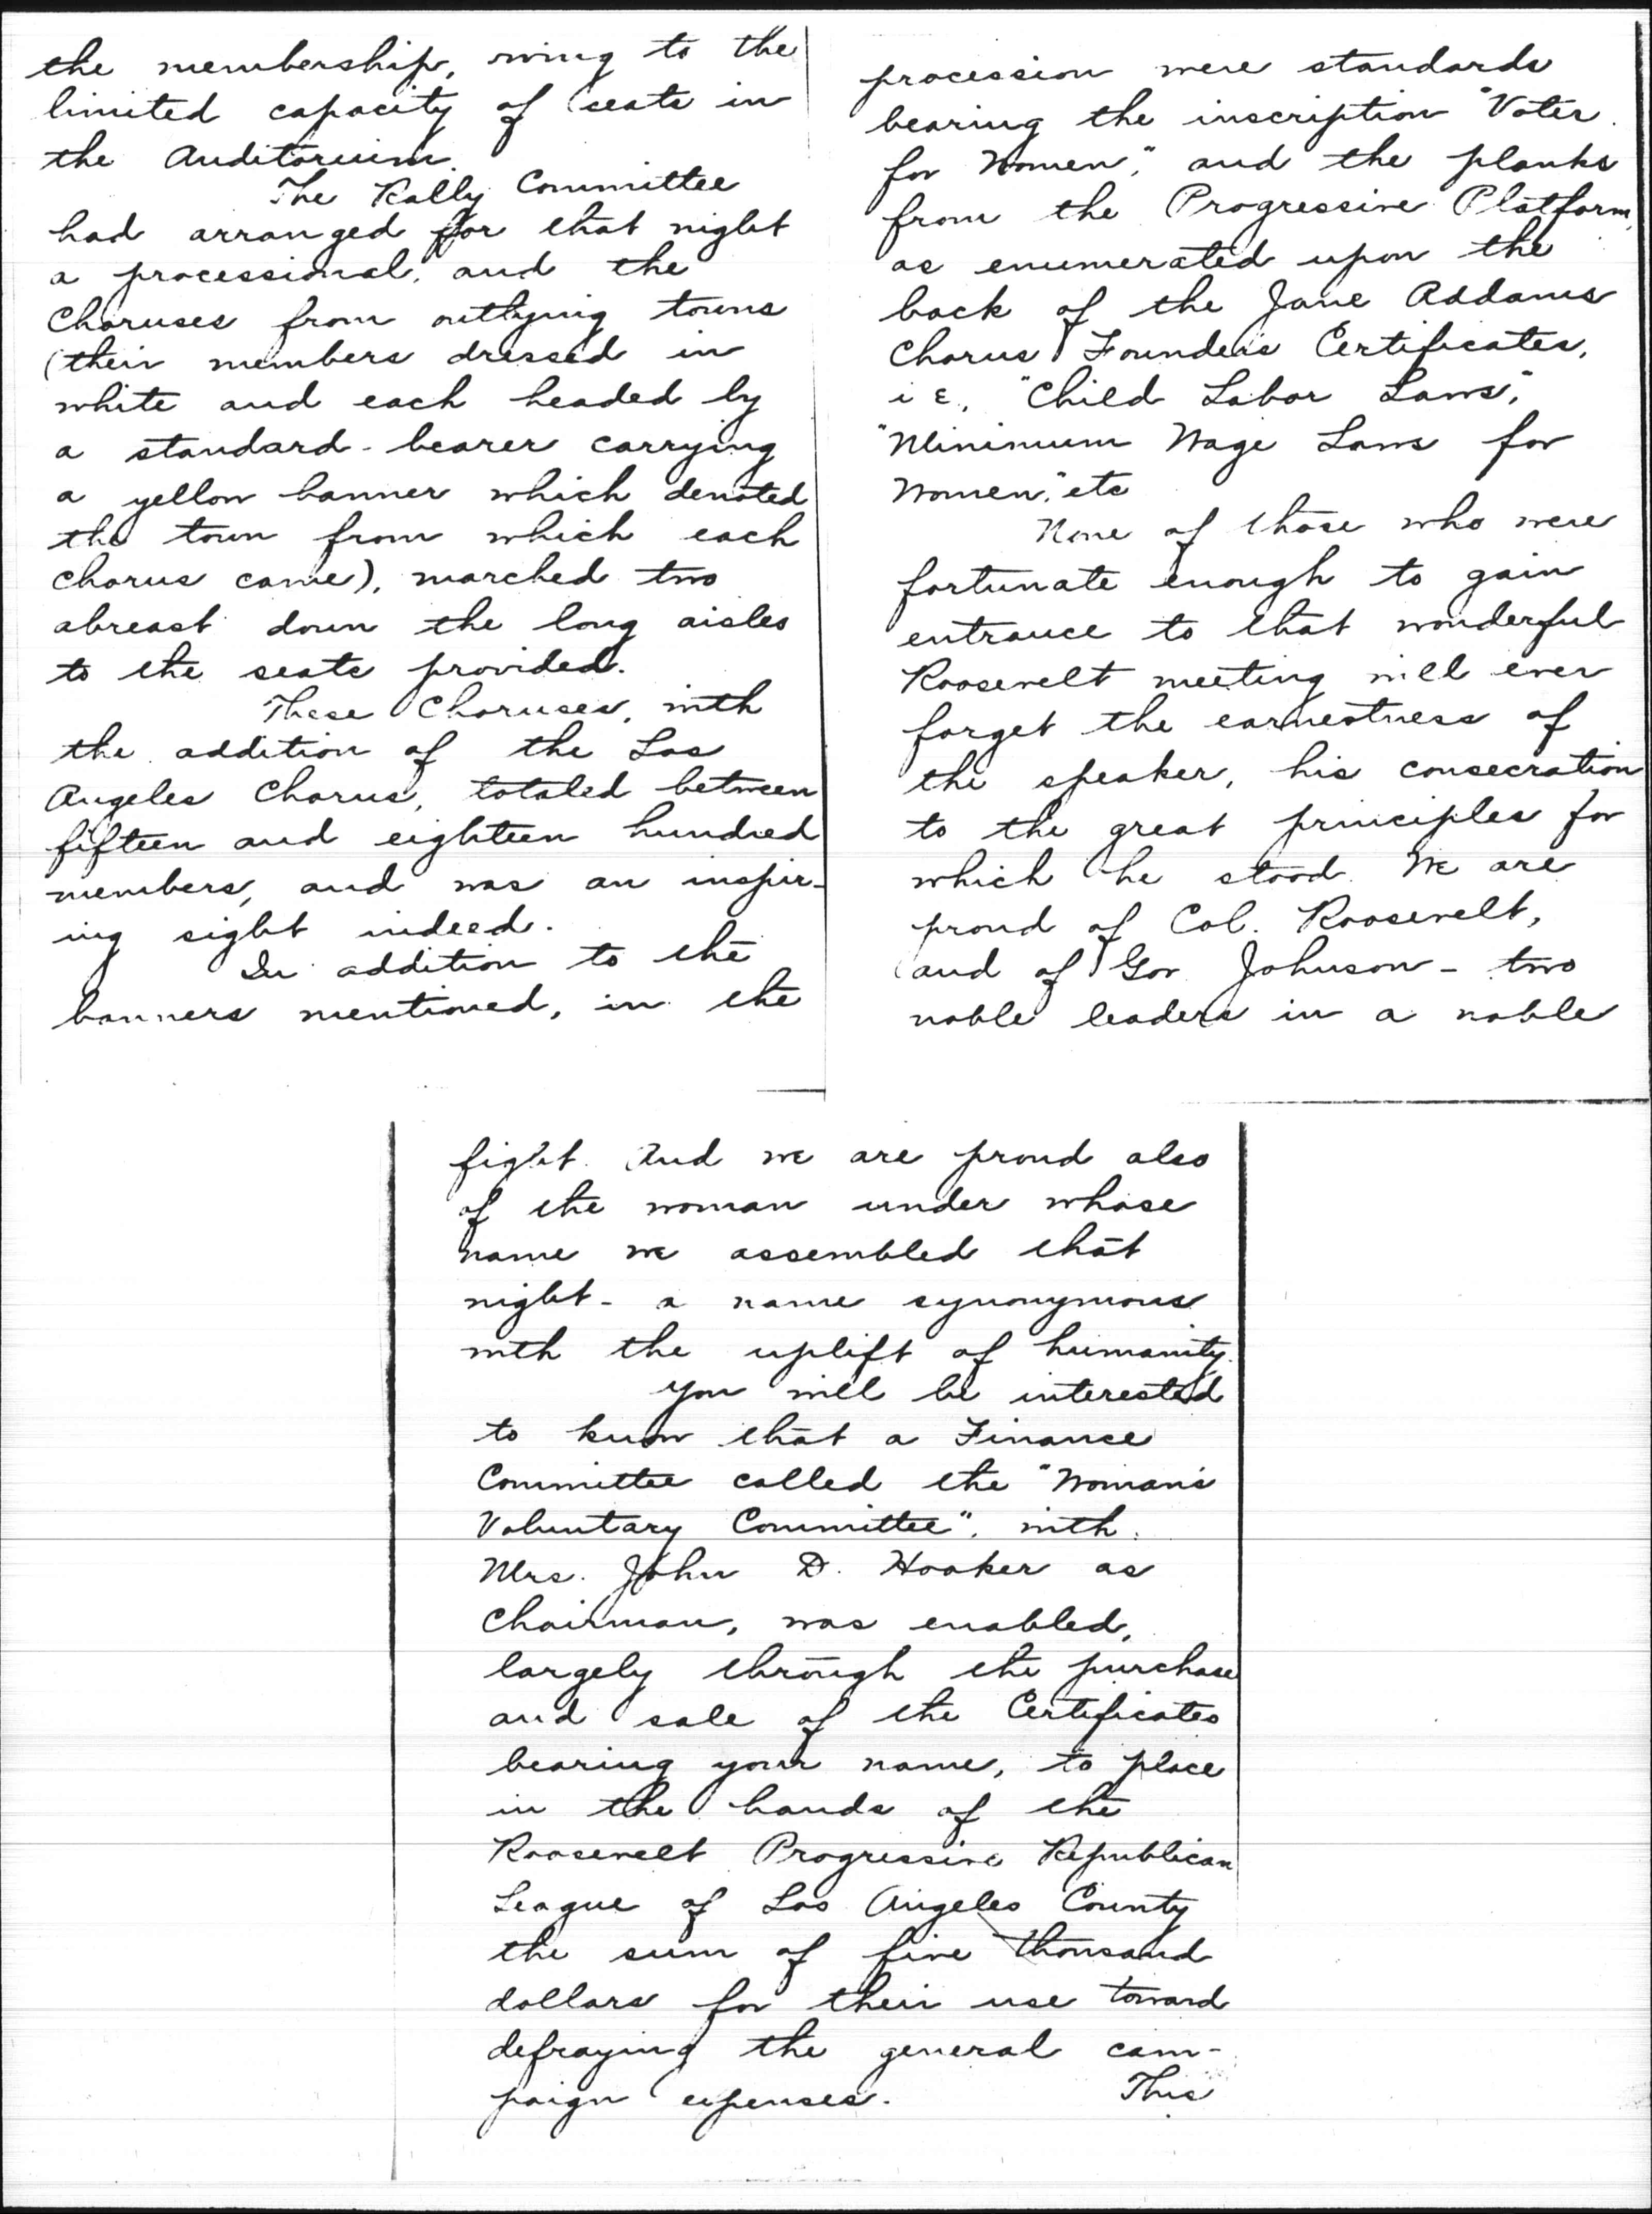 the membership, owing to the
limited capacity of seats in
the Auditorium.
The Rally Committee
had arranged for that night
a processional, and the
Choruses from outlying towns
(their members dressed in
white and each headed by
a standard-bearer carrying
a yellow banner which denoted
the town from which each
Chorus came), marched two
abreast down the long aisles
to the seats provided.
These Choruses, with
the addition of the Los
Angeles Chorus, totaled between
fifteen and eighteen hundred
members, and was an inspir-
ing sight indeed.
In addition to the
banners mentioned, in the
procession were standards
bearing the inscription "Votes
for Women", and the planks
from the Progressive Platform,
as enumerated upon the
back of the Jane Addams
Chorus Founders Certificates,
i e., "Child Labor Laws",
"Minimum Wage Laws for
Women," etc
None of those who were
fortunate enough to gain
entrance to that wonderful
Roosevelt meeting will ever
forget the earnestness of
the speaker, his consecration
to the great principles for
which he stood. We are
proud of Col. Roosevelt,
and of Gov. Johnson - two
noble leaders in a noble
fight. And we are proud also
of the woman under whose
name we assembled that
night - a name synonymous
with the uplift of humanity.
You will be interested
to know that a Finance
Committee called the "Woman's
Voluntary Committee", with
Mrs. John D. Hooker as
Chairman, was enabled,
largely through the purchase
and sale of the Certificates
bearing your name, to place
in the hands of the
Roosevelt Progressive Republican
League of Los Angeles County
the sum of five thousand
dollars for their use toward
defraying the general cam-
paign expenses. This